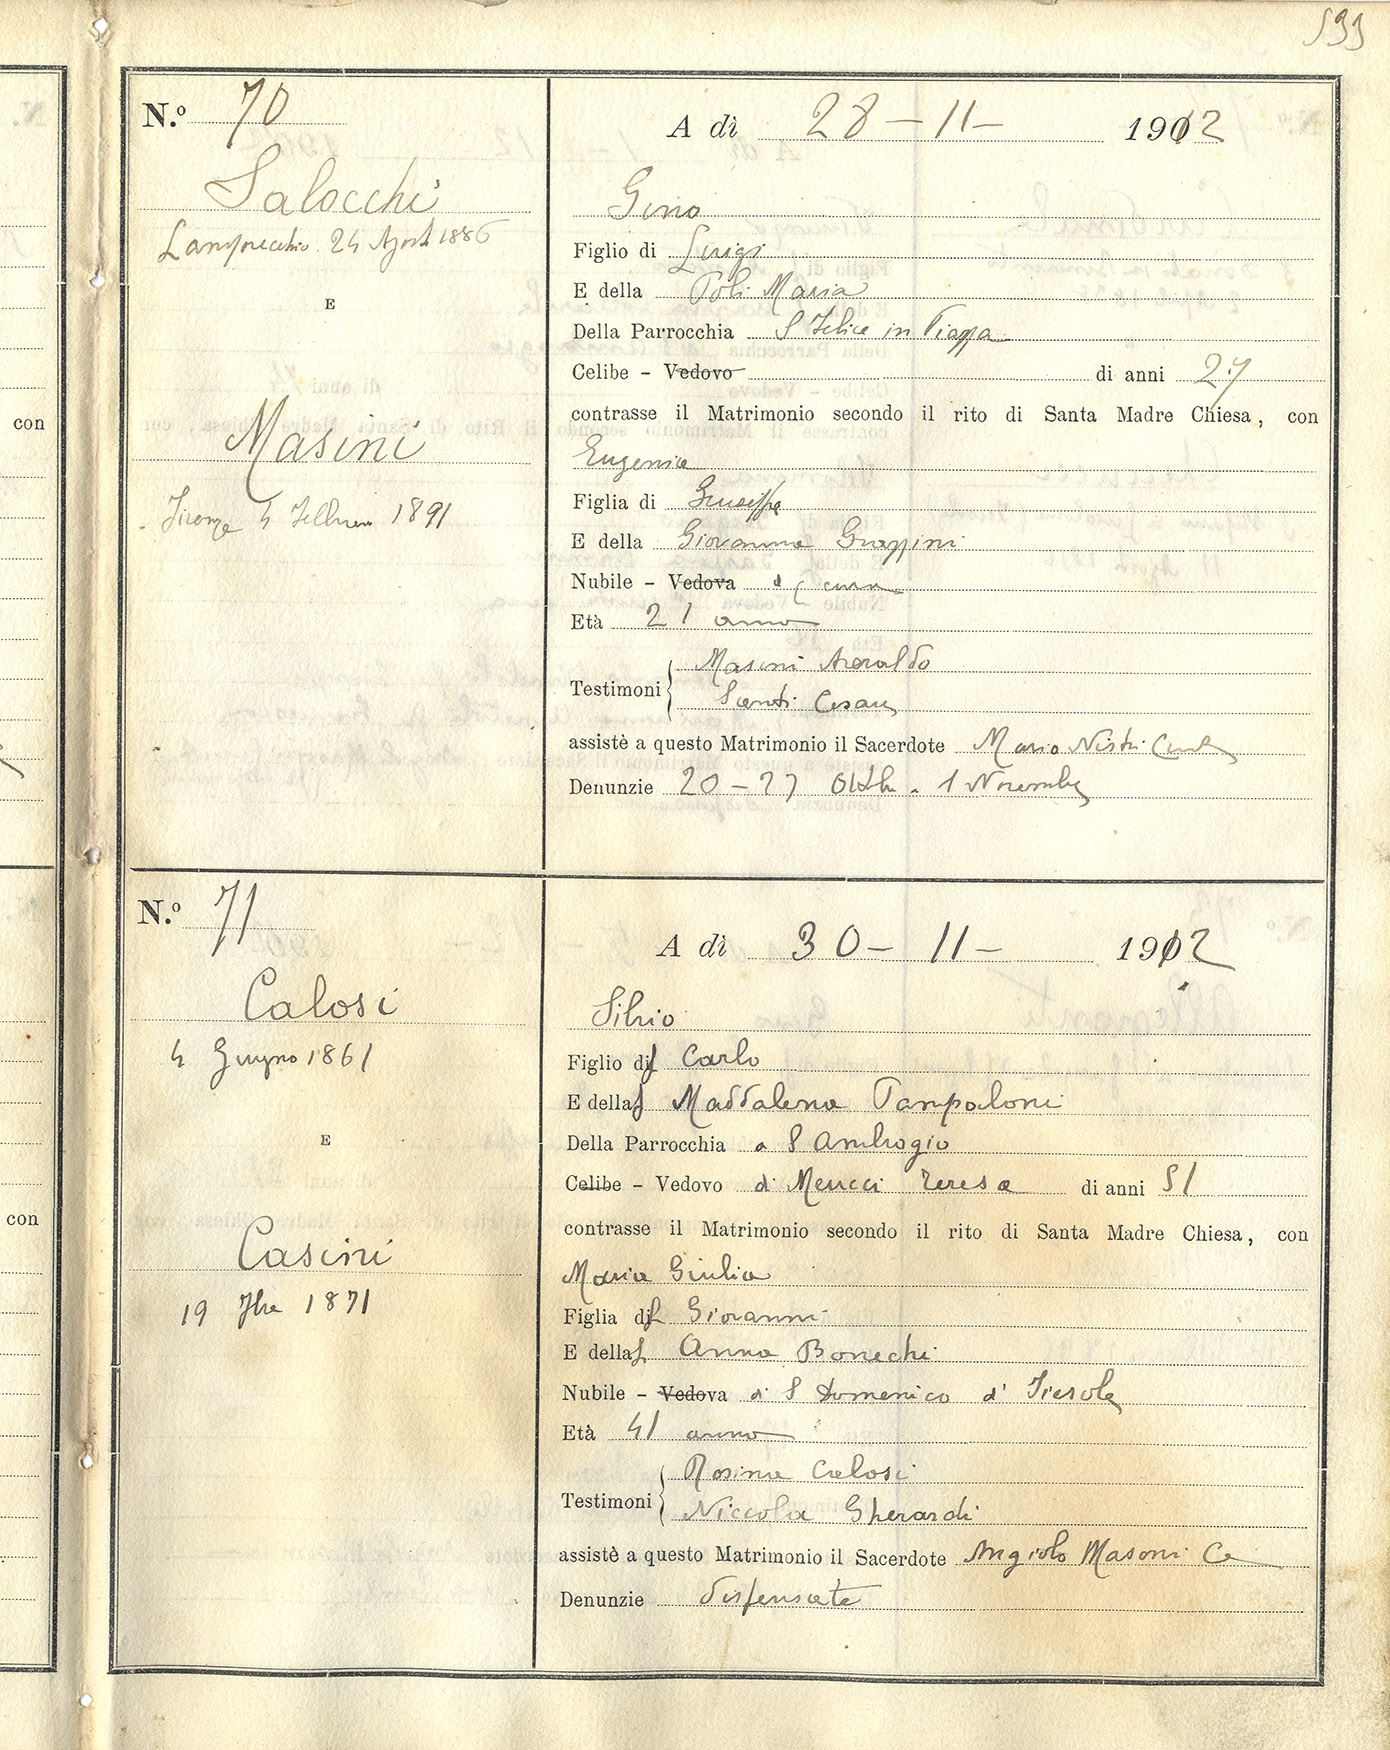 533
N.º 70
A dì 28 – 11 – 1912
Salocchi
Lamporecchio 24 Agosto 1886
E
Masini
Firenze 4 Febbraio 1891
Gino
Figlio di Luigi
E della Poli Maria
Della Parrocchia S Felice in Piazza
Celibe – Vedovo di anni 27
contrasse il Matrimonio secondo il rito di Santa Madre Chiesa, con
Eugenia
Figlia di Giuseppe
E della Giovanna Grazzini
Nubile – Vedova di cura
Età 21 anno
Testimoni Masini
Santi Cesare
assistè a questo Matrimonio il Sacerdote Mario Nistri
Denunzie 20 – 27 – 1 Novembre
N.º 71
A dì 30 – 11 – 1912
Calosi
4 Giugno 1861
E
Casini
19 7bre 1871
Silvio
Figlio di f Carlo
E della f Maddalena Pampaloni
Della Parrocchia a S Ambrogio
Celibe – Vedovo di Meucci Teresa di anni 51
contrasse il Matrimonio secondo il rito di Santa Madre Chiesa, con
Maria Giulia
Figlia di f Giovanni
E della f Anna Bonechi
Nubile – Vedova di S Domenico di Fiesole
Età 41 anno
Testimoni Rosina Calosi
Niccola Gherardi
assistè a questo Matrimonio il Sacerdote Angiolo Masoni
Denunzie dispensate
con
con